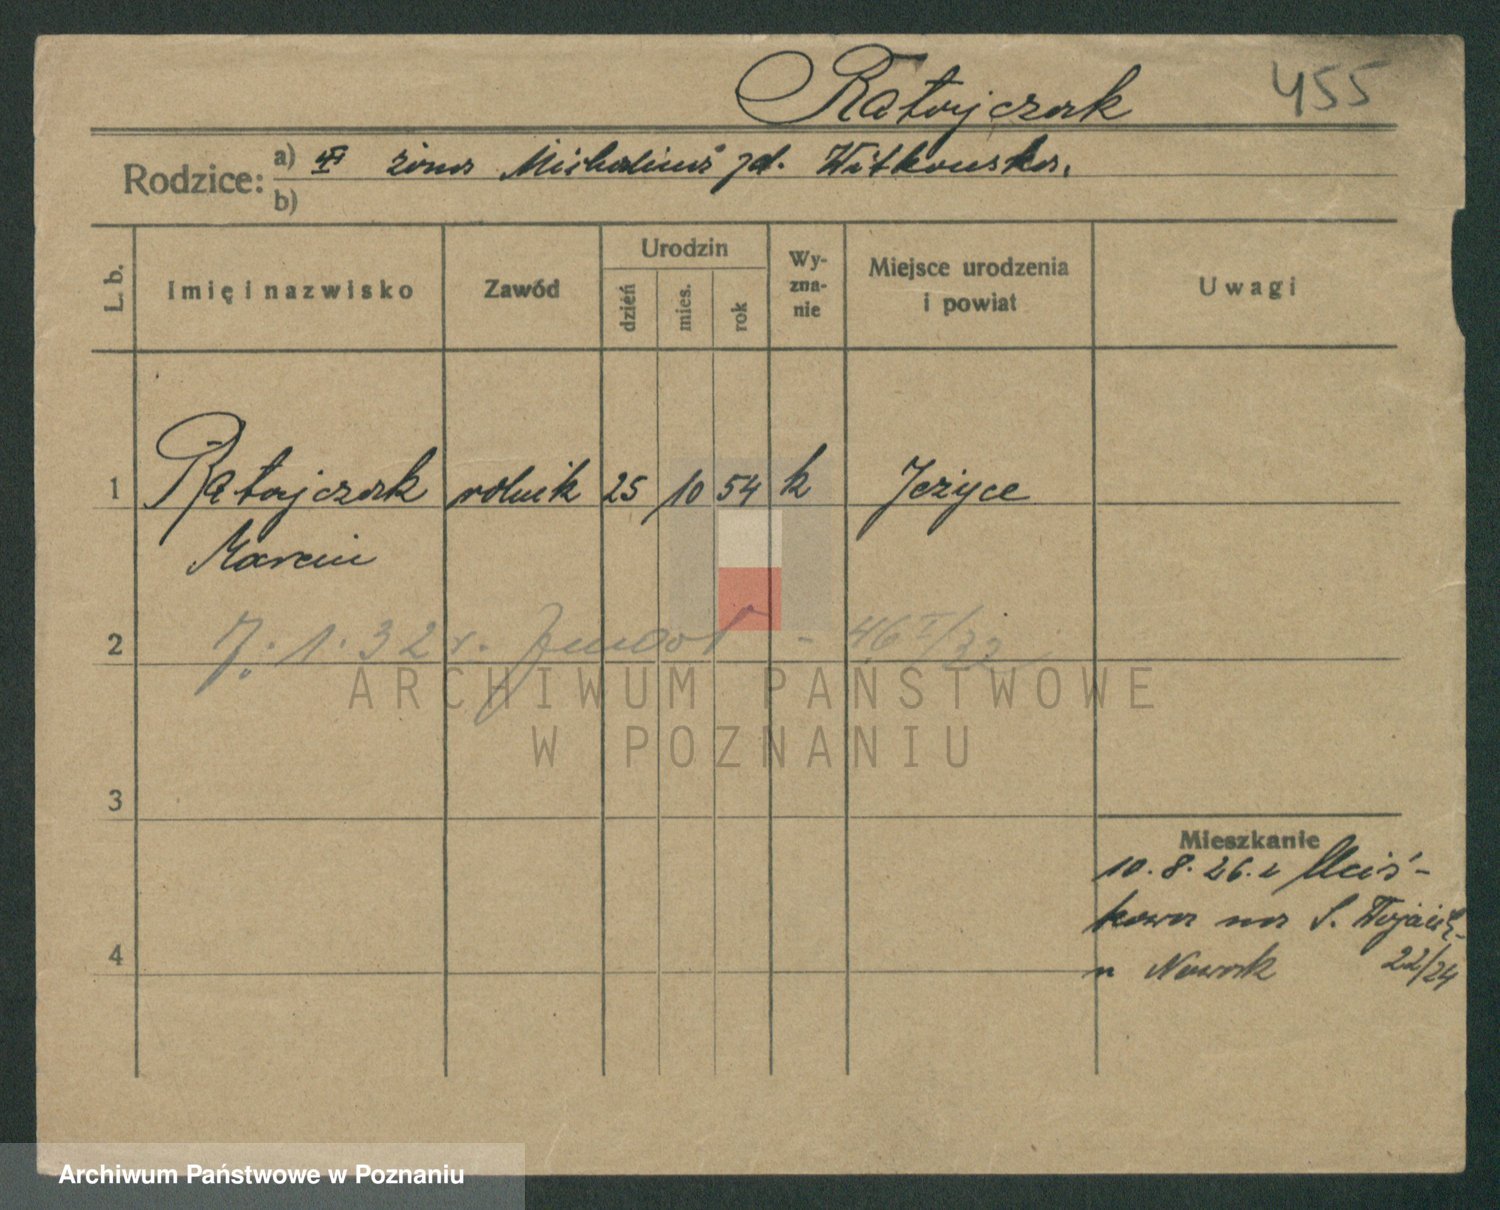 Ratajczak 455
Rodzice: a) żona Michalina zd. Witkowska.
b)
L. b. Imię i nazwisko Zawód Urodzin dzień mies. rok Wy-zna-nie Miejsce urodzenia i powiat Uwagi
1 Ratajczak rolnik 25 10 54 k Jeżyce
Marcin
2 7.1.32 r. zmarł - 46 I/32
ARCHIWUM PAŃSTWOWE
W POZNANIU
3
Mieszkanie
10.8.26. z
na S. Wojciech
4
u Nowak 22/24
Archiwum Państwowe w Poznaniu